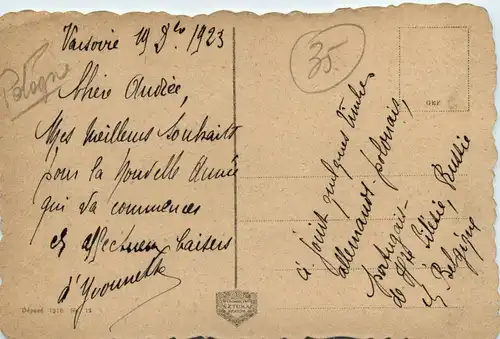 Varsovie 19 Dbre 1923
Pologne
35
Chère Andrée,
Mes meilleurs souhaits
pour la nouvelle Année
qui va commencer
et affectueux baisers
d'Yvonnette
ci joint quelques timbres
allemands, polonais,
portugais
de Hte Silésie, Russie
et Belgique
GKF
Déposé 1916 No. 13